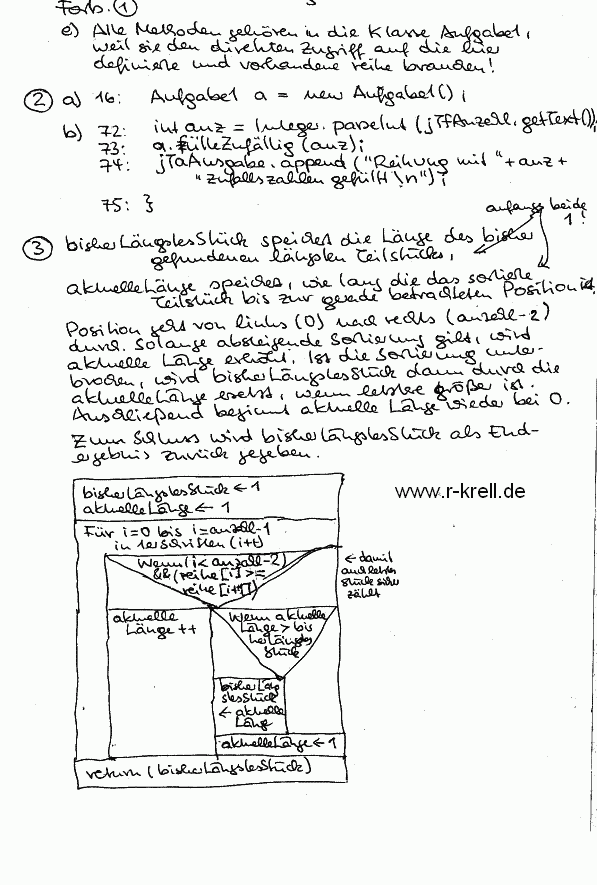 Forts. ①
e) Alle Methoden gehören in die Klasse Aufgabe1,
weil sie den direkten Zugriff auf die hier
definierte und vorhandene reihe brauchen!
② a) 16: Aufgabe1 a = new Aufgabe1();
b) 72: int anz = Integer.parseInt (jTfAnzahl.getText());
73: a.fülleZufällig (anz);
74: jTaAusgabe.append ("Reihung mit "+anz+
"Zufallszahlen gefüllt \n");
75: }
anfangs beide
1!
③ bisherLängstesStück speichert die Länge des bisher
gefundenen längsten Teilstücks,
aktuelleLänge speichert, wie lang die das sortierte
Teilstück bis zur gerade betrachteten Position ist.
Position geht von links (0) nach rechts (anzahl-2)
durch. Solange absteigende Sortierung gilt, wird
aktuelle Länge erhöht. Ist die Sortierung unter-
brochen, wird bisherLängstesStück dann durch die
aktuelleLänge ersetzt, wenn letztere größer ist.
Anschließend beginnt aktuelle Länge wieder bei 0.
Zum Schluss wird bisherLängstesStück als End-
ergebnis zurück gegeben.
bisherLängstesStück ← 1
aktuelleLänge ← 1
www.r-krell.de
Für i=0 bis i=anzahl-1
in 1erschritten (i++)
Wenn (i < anzahl-2)
&& (reihe[i] >=
reihe[i+1])
← damit
auch letztes
Stück sicher
zählt
aktuelle
Länge ++
Wenn aktuelle
Länge > bis
herLängstes
Stück
bisherLäng
stesStück
← aktuelle
Läng
aktuelleLänge ← 1
return (bisherLängstesStück)